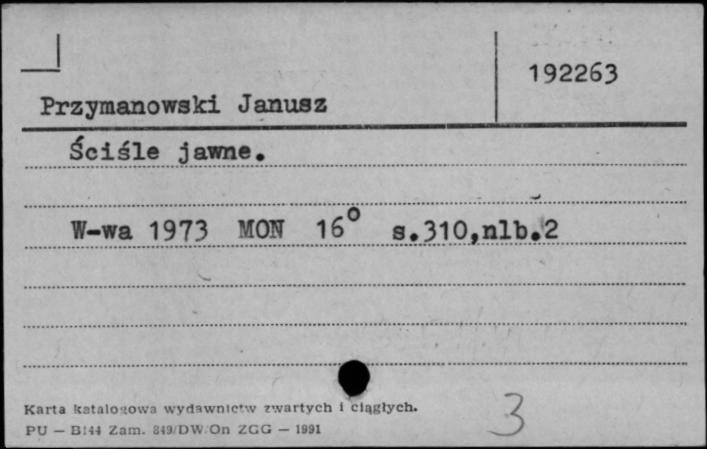 192263
Przymanowski Janusz
Ściśle jawne.
W-wa 1973 MON 16° s.310,nlb.2
Karta katalogowa wydawnictw zwartych i ciągłych.
PU — B144 Zam. 849/DW/On ZGG — 1991
3